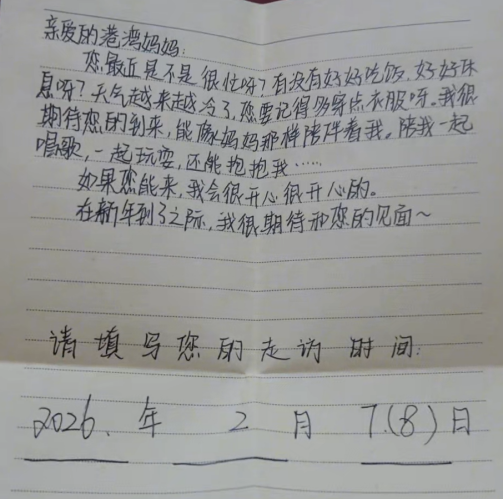 亲爱的港湾妈妈:
您最近是不是很忙呀?有没有好好吃饭,好好休
息呀?天气越来越冷了,您要记得多穿点衣服呀。我很
期待您的到来,能像妈妈那样陪伴着我,陪我一起
唱歌,一起玩耍,还能抱抱我……
如果您能来,我会很开心很开心的。
在新年到了之际,我很期待和您的见面~
请填写您的走访时间:
2026.年 2 月 7.(8)日